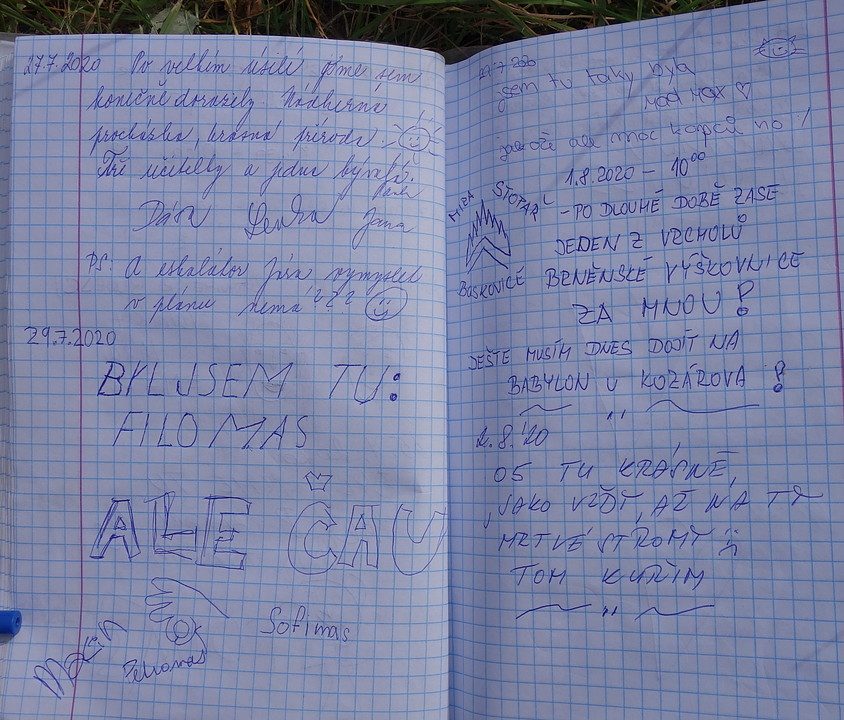 27.7.2020 Po velkém úsilí jsme sem
konečně dorazily. Nádherná
procházka, krásná příroda.
Tři učitelky a jedna bývalá.
Dáša Lenka Jana
PS: A eskalátor Jíra vymyslel
v plánu nemá???
29.7.2020
BYL JSEM TU:
FILOMAS
ALE ČAU
Sofimas
Petromas
jsem tu taky byla
Mad Max
ale moc no!
1.8.2020 - 10⁰⁰
MÍRA STOTAŘ
BOSKOVICE
- PO DLOUHÉ DOBĚ ZASE
JEDEN Z VRCHOLŮ
BRNĚNSKÉ VÝŠKOVNICE
ZA MNOU!
JEŠTE MUSÍM DNES DOJÍT NA
BABYLON U KOZÁROVA!
2.8.'20
05 TU KRÁSNĚ,
JAKO VŽDY, AŽ NA TY
MRTVÉ STROMY
TOM KUŘIM